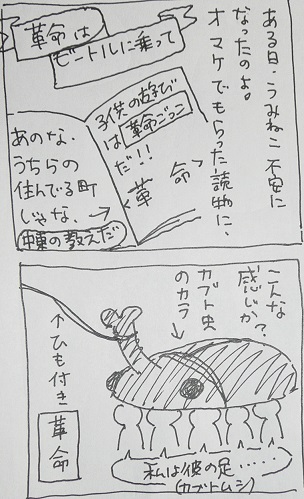 ある日、うみねこ不安に
なったのよ。
オマケでもらった読物に、
革命は
ビートルに乗って
子供の遊び
は革命ごっこ
だ!!
革命
あのな、
うちらの
住んでる町
じゃな、→
中東の教えだ
こんな
感じか?
カブト虫
のカラ
↑ひも付き
革命
私は彼の足……
(カブトムシ)